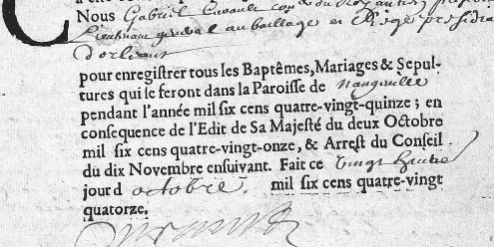 Nous Gabriel Curault con.er du Roy
Lieutenant general au bailliage et Siege presidial
D'orleans
pour enregistrer tous les Baptêmes, Mariages & Sepul-
tures qui se feront dans la Paroisse de
pendant l'année mil six cens quatre-vingt-quinze ; en
consequence de l'Edit de Sa Majesté du deux Octobre
mil six cens quatre-vingt-onze, & Arrest du Conseil
du dix Novembre ensuivant. Fait ce vingt
jour d octobre. mil six cens quatre-vingt
quatorze.